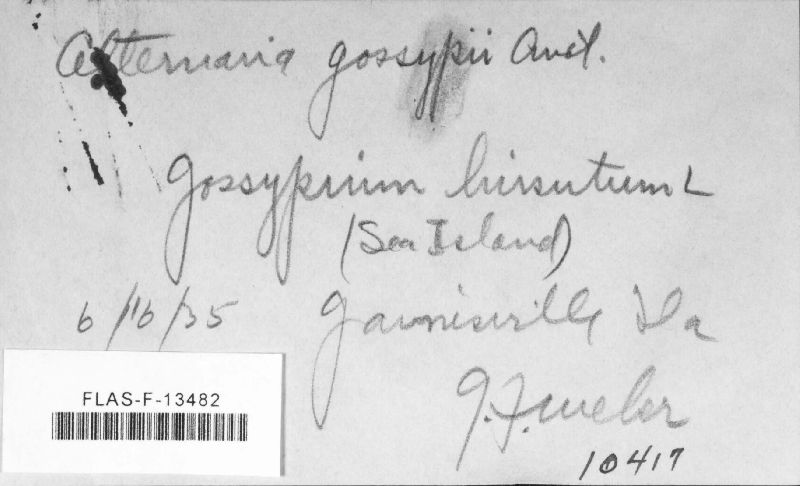 Alternaria gossypii Avel.
Gossypium hirsutum L
(Sea Island)
6/16/35 Gainesville Fla
G.F. Weber
10417
FLAS-F-13482